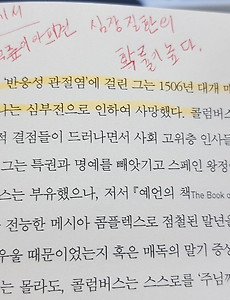 무릎이 아프면 심장질환의
확률이 높다.
'반응성 관절염'에 걸린 그는 1506년 대개 매
나는 심부전으로 인하여 사망했다. 콜럼버스
적 결점들이 드러나면서 사회 고위층 인사들
그는 특권과 명예를 빼앗기고 스페인 왕정
스는 부유했으나, 저서 『예언의 책The Book o
전능한 메시아 콤플렉스로 점철된 말년을
우울 때문이었는지 혹은 매독의 말기 증상
는 몰라도, 콜럼버스는 스스로를 '주님